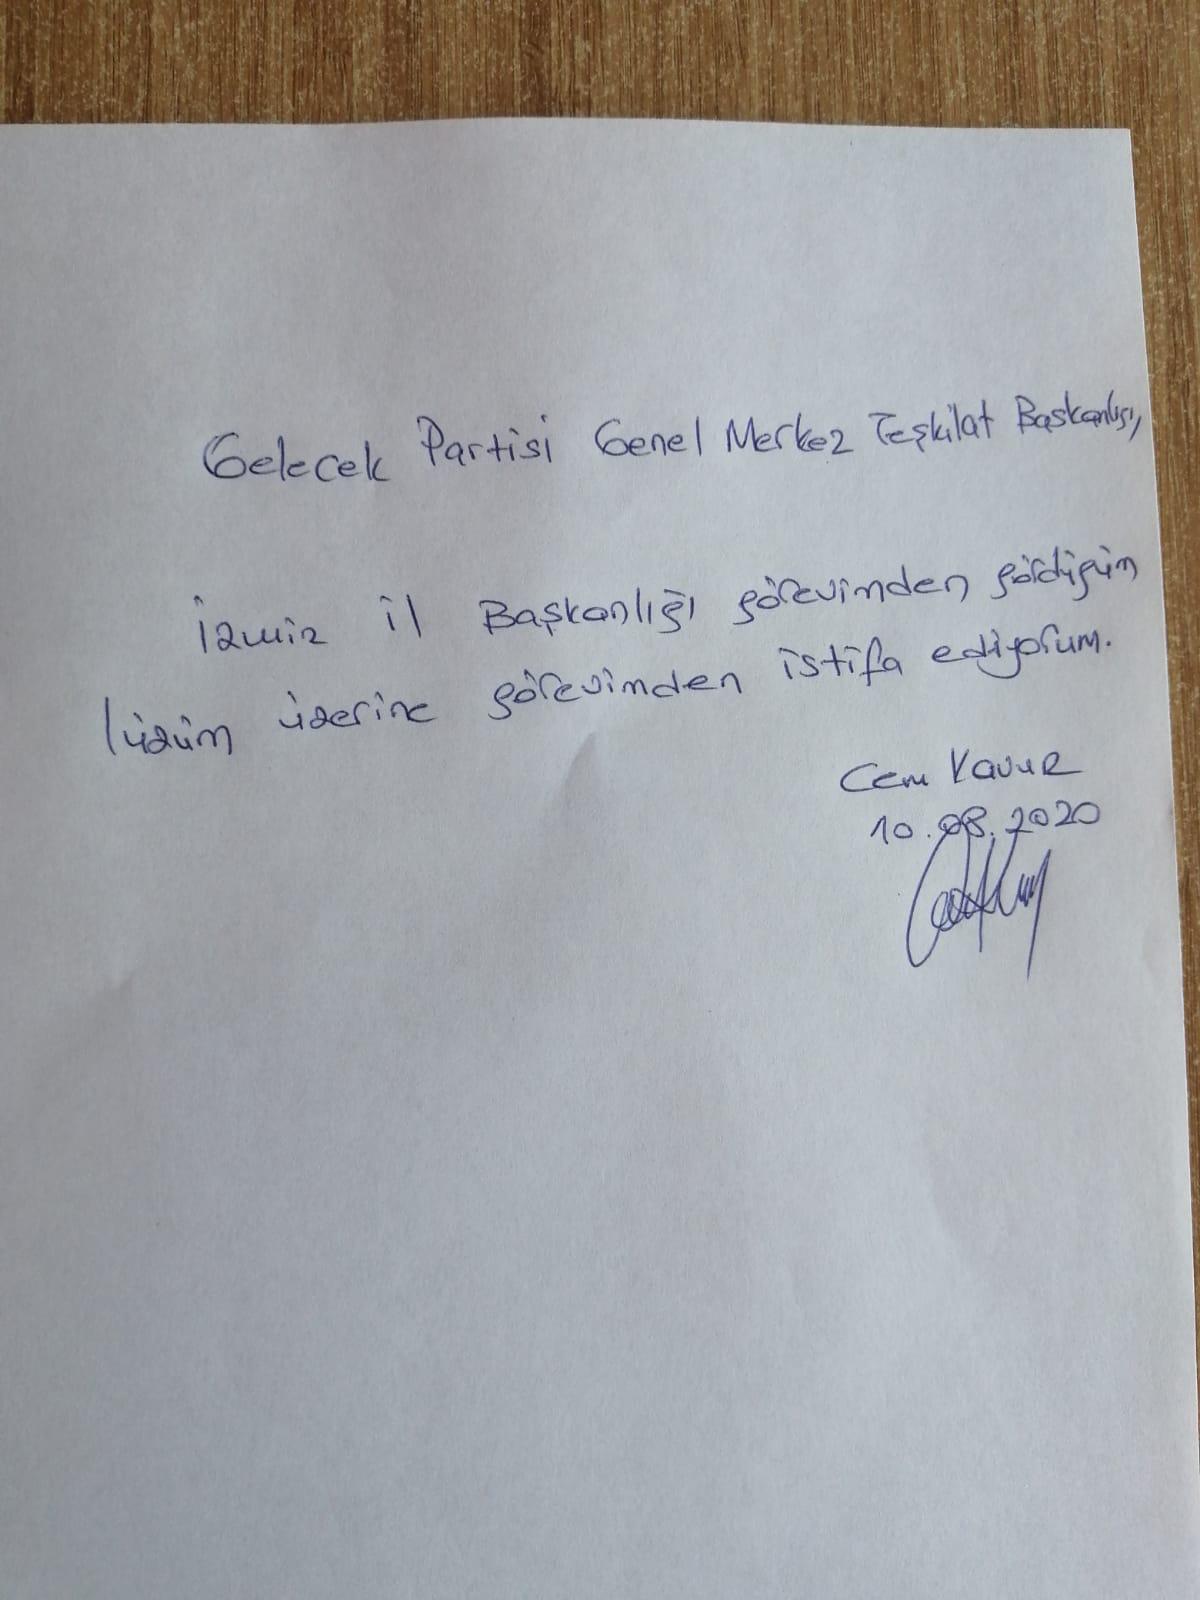 Gelecek Partisi Genel Merkez Teşkilat Başkanlığı,
İzmir il Başkanlığı görevimden gördüğüm
lüzum üzerine görevimden istifa ediyorum.
Cem Kavur
10.08.2020